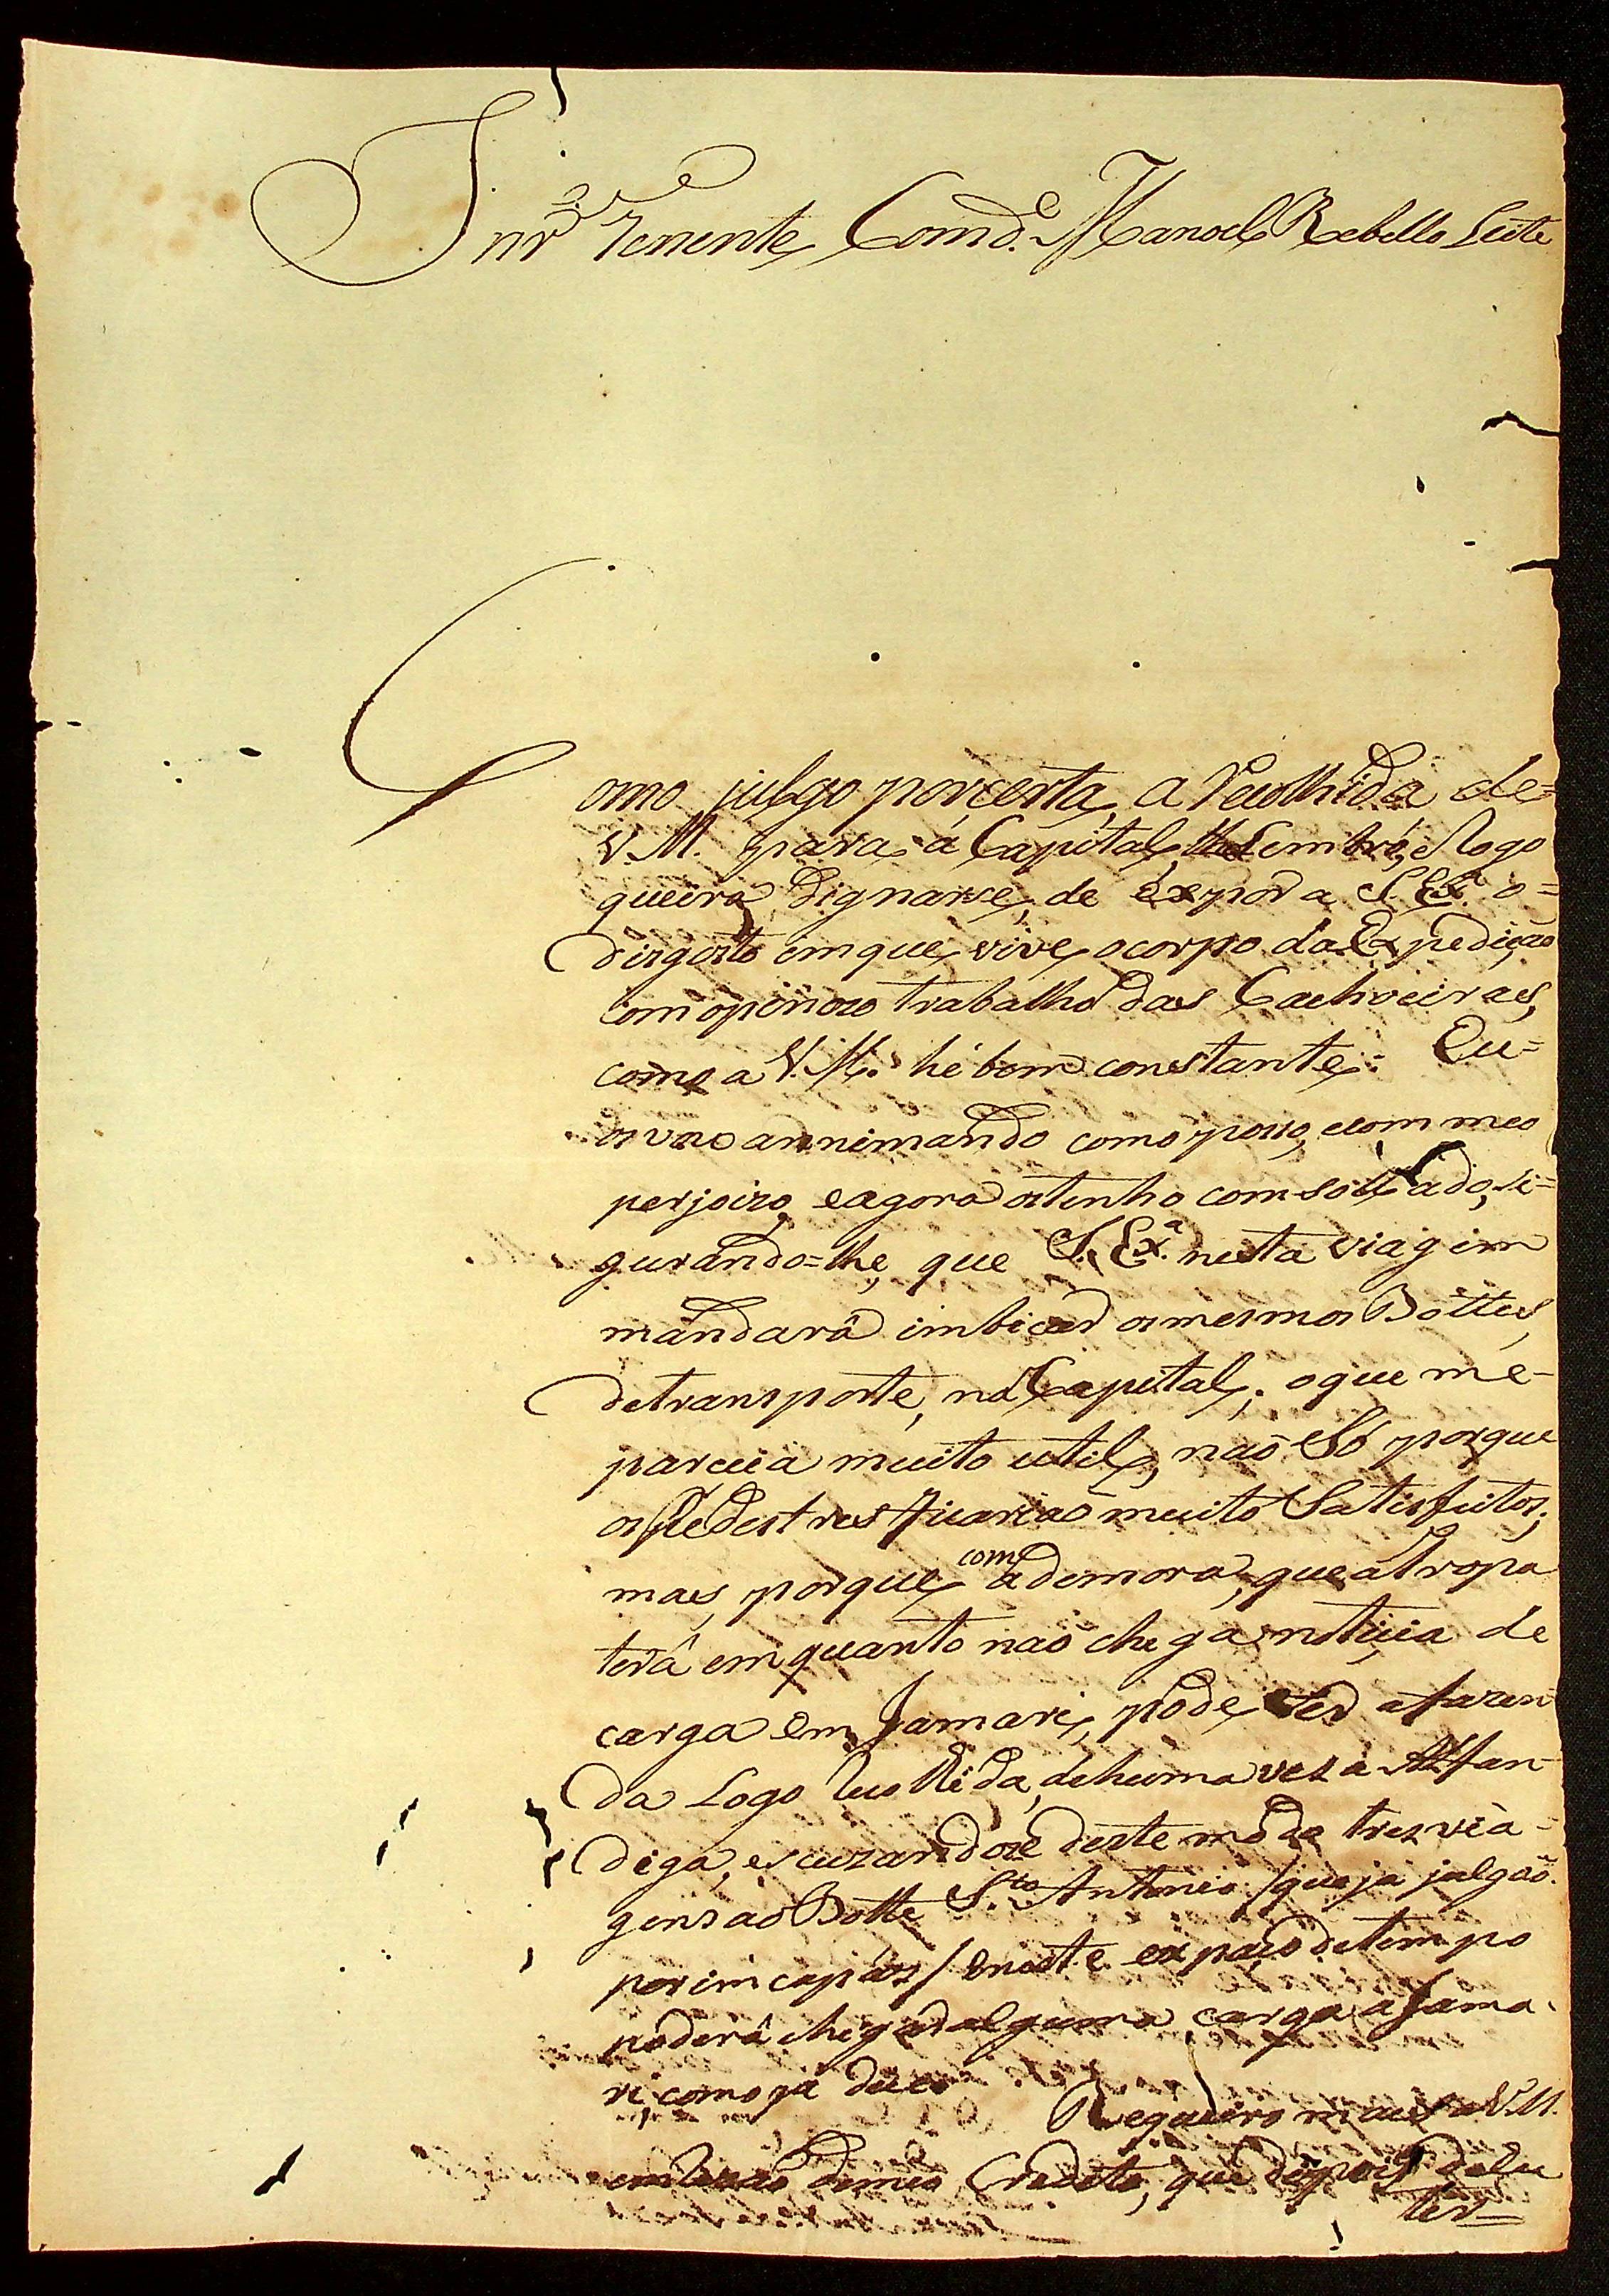 Snr. Tenente Comd.e Manoel Rebello Leite
Como julgo por certa, a recolhida de=
V.M. para á Capital, lhe Lembro, e Rogo
queira dignarse, de expôr a S. Ex.ª o=
disgosto em que vive o corpo da Expedição
com o penozo trabalho das Cachoeiras,
como a V.M. hé bem constante: Eu=
os vou annimando como posso, e com meo
perjoizo, e agora os tenho comsollado, se=
gurando=lhe, que S. Ex.ª nesta viagem
mandarâ imbicar os mesmos Bottes,
de transporte, na Capital; o que me=
parecia muito util, naõ Só porque
os Pedestres ficariaõ muito Satisfeitos;
mas, porque com a demora, que a tropa
terâ em quanto naõ chega noticia de
carga em Jamari, pode ser a fazen=
da Logo recolhida, de huma vez a Alfan=
diga, escuzandose deste modo tres via=
gens ao Botte S.to Antonio / que ja julgaõ
por imcapás / e neste espaço de tempo
poderâ chegar alguma carga a Jama=
ri, como já dice.
Requeiro mais a V.M.
em razaõ de meo Credito, que depois de lu
ter=